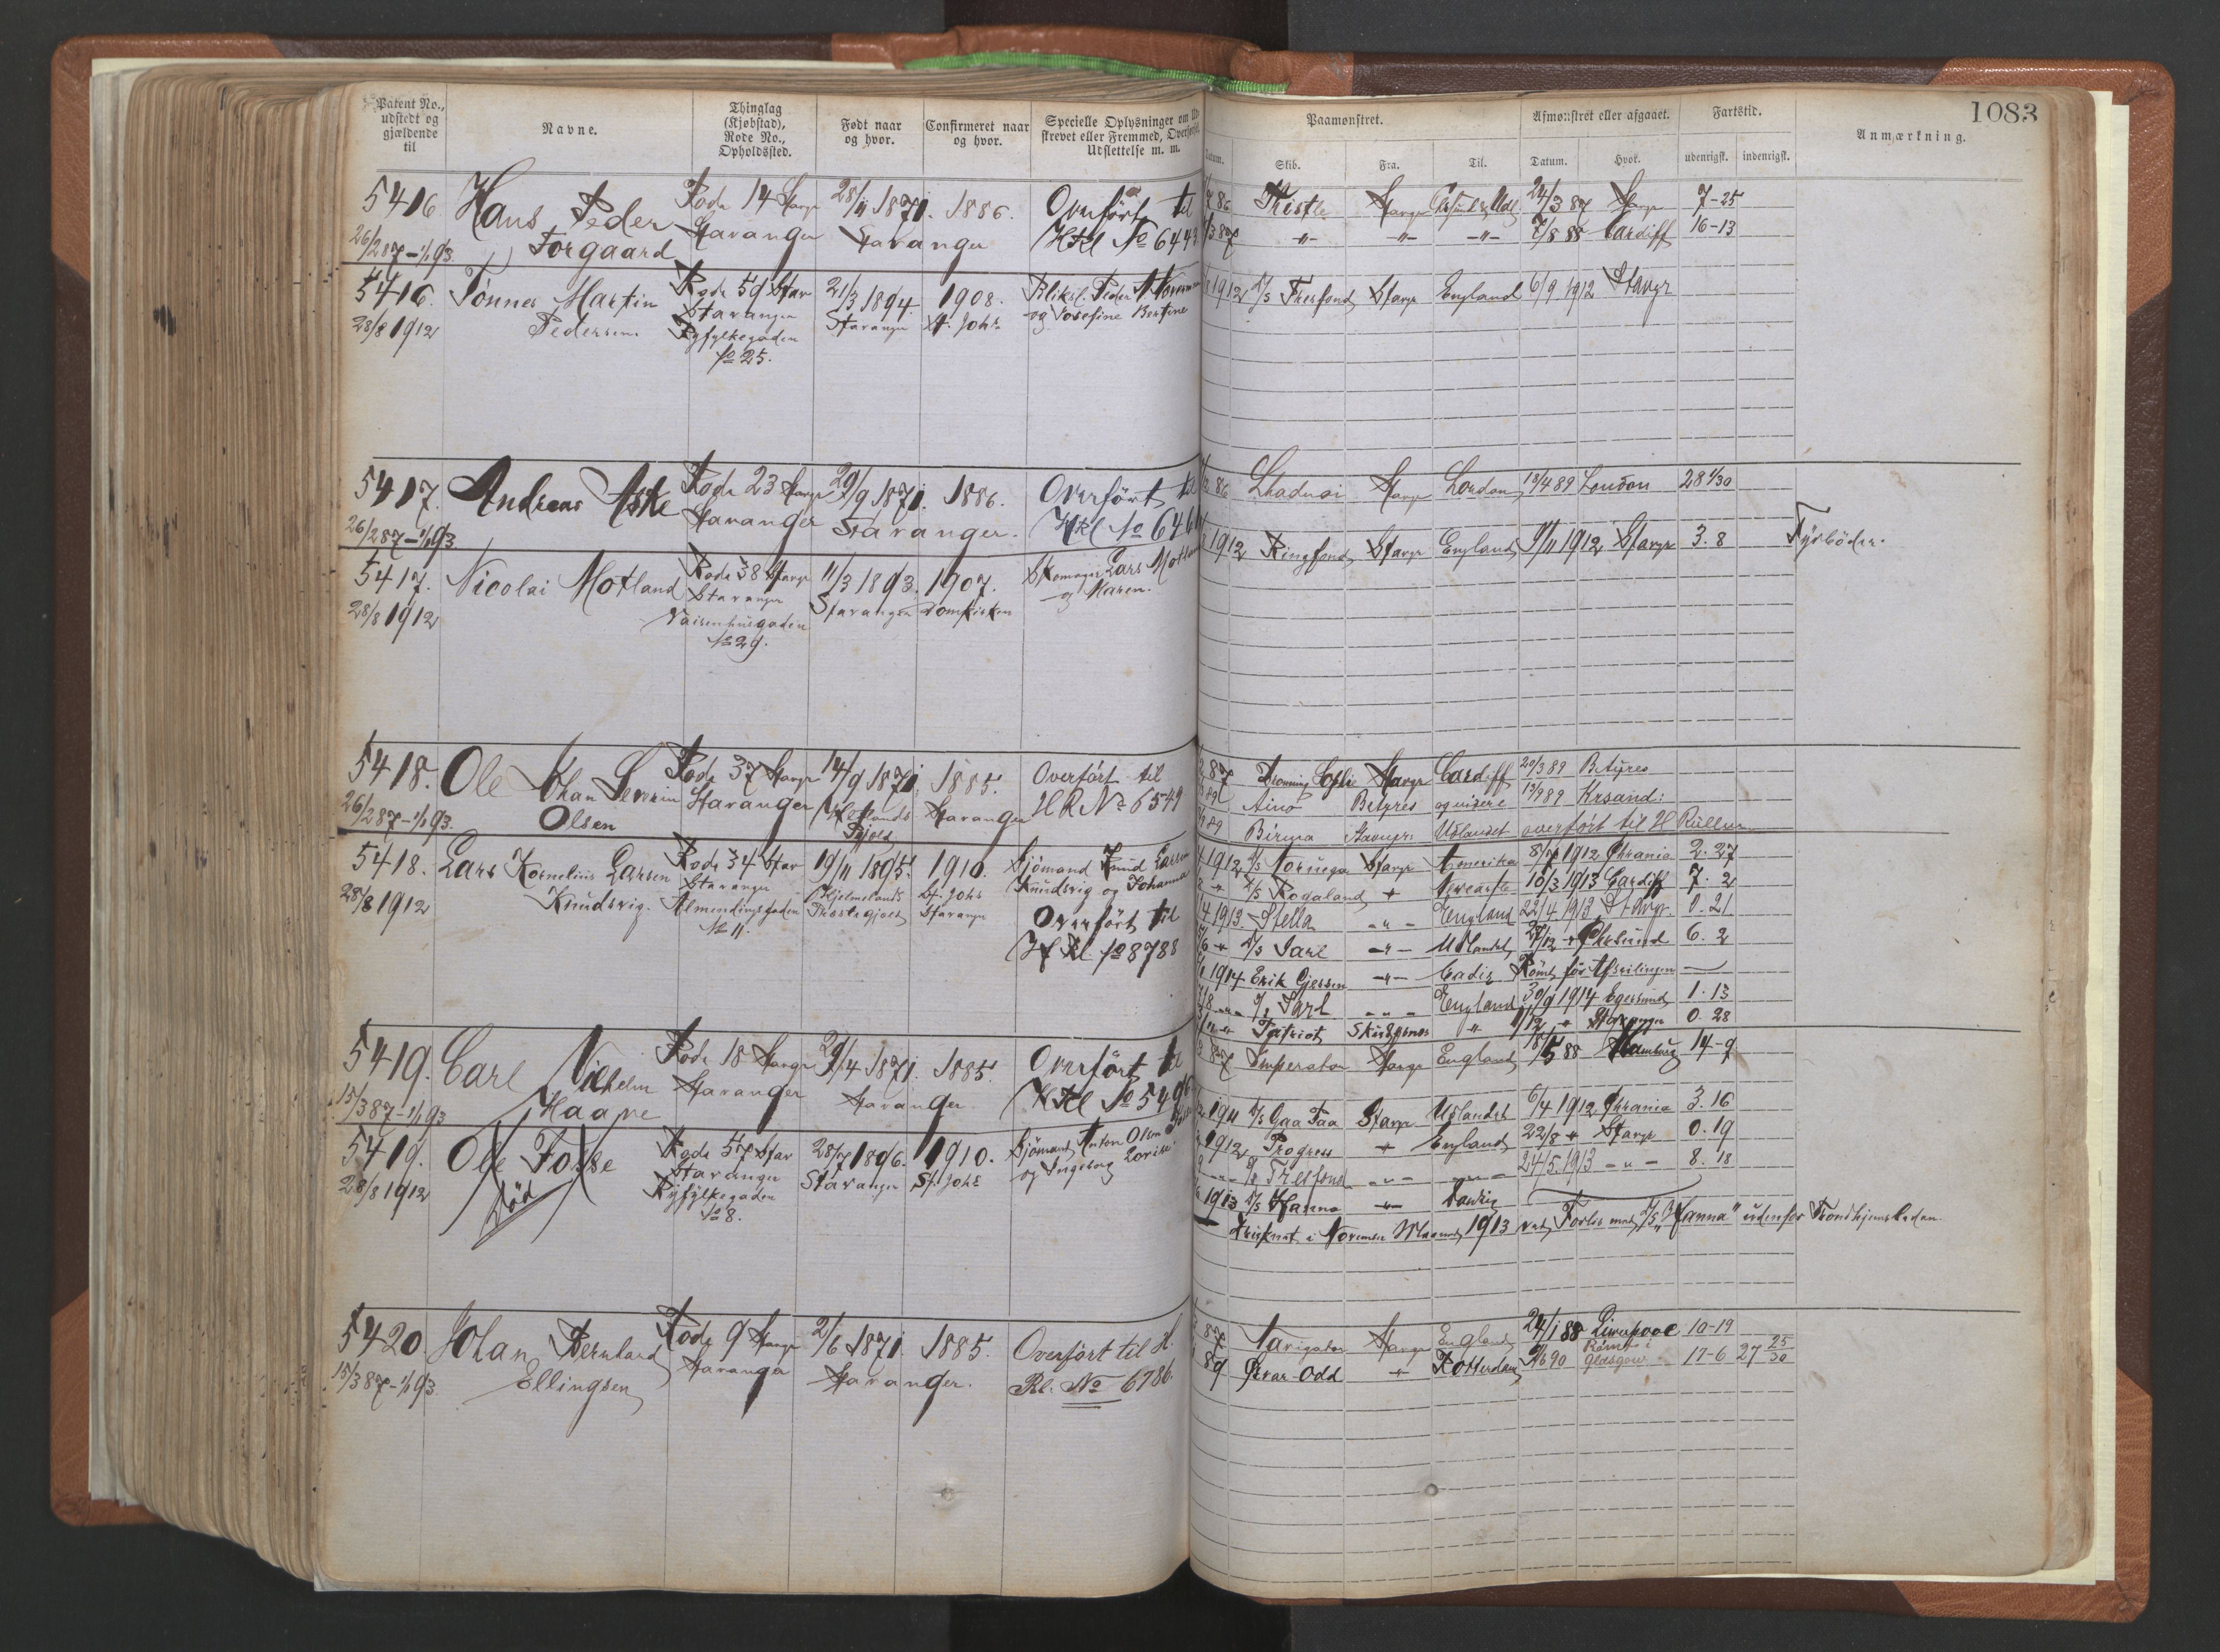 Patent No.,
udstedt og
gjældende
til
Navne.
Thinglag
(Kjøbstad),
Rode No.,
Opholdssted.
Født naar
og hvor.
Confirmeret naar
og hvor.
Specielle Oplysninger om Ud-
skrevet eller Fremmed, Overførsel,
Udslettelse m. m.
5416
26/2 87 – 1/1 93.
Hans Peder
Torgaard
Rode 14 Stavgr
Stavanger
28/11 1871.
Stavanger
1886.
Overført til
HRl No 6443
5416.
28/8 1912
Tønnes Martin
Pedersen
Rode 59 Stav
Stavanger
Ryfylkegaden
No 25.
21/3 1894.
Stavanger
1908.
St. Johs
Bliksl. Peder
og Josefine Bertine
5417.
26/2 87 – 1/1 93
Andreas Aske
Rode 23 Stavgr
Stavanger
29/9 1871.
Stavanger.
1886.
Overført til
HRl No 646
5417.
28/8 1912
Nicolai Motland
Rode 38 Stavgr
Stavanger
Vaisenhusgaden
No 29.
11/3 1893.
Stavanger
1907.
Domkirken
Skomager Lars Motland
og Maren.
5418.
26/2 87 – 1/1 93.
Ole Johan Severin
Olsen
Rode 37 Stavgr
Stavanger
14/9 1871.
1885.
Stavanger
Overført til
H R No 6549
5418.
28/8 1912
Lars Kornelius Larsen
Knudsvig.
Rode 34 Stav
Stavanger
Almendingsgaden
No 11.
19/11 1895.
Hjelmelands
1910.
St. Johs
Stavanger
Sjømand Knud Larsen
Knudsvig og Johanna
Overført til
H Rl. No 8788
5419.
15/3 87 – 1/1 93
Carl Vilhelm
Haave
Rode 18 Stavgr
Stavanger
29/4 1871.
Stavanger
1885.
Overført til
HRl No 549
5419.
28/8 1912
Ole Fosse
Død
Rode 57 Stav
Stavanger
Ryfylkegaden
No 8.
28/7 1896.
Stavanger
1910.
St. Johs
Sjømand Anton Olsen
og Ingeborg Lovise
5420.
15/3 87 – 1/1 93.
Johan Bernhard
Ellingsen
Rode 9 Stavgr
Stavanger
2/6 1871.
Stavanger.
1885.
Overført til H.
Rl. No 6786.
1083
Paamønstret.
Afmønstret eller afgaaet.
Fartstid.
Anmærkning.
Datum.
Skib.
Fra.
Til.
Datum.
Hvor.
udenrigsk.
indenrigsk.
86 Kistle Stavgr 24/3 87 Stavgr 7-25
3 87 -"- -"- -"- 7/8 88 Cardiff 16-13
1912 D/S Fresfond Stavgr England 6/9 1912 Stavgr
86 Stavgr London 18/4 89 London 28 1/30
1912 Ringfond Stavgr England 9/11 1912 Stavgr 3.8 Fyrbøder.
87 Dronning Sophie Stavgr Cardiff 20/3 89 B.Ayres
89 Aino B.Ayres 13/9 89 Krsand:
89 Birma Stavgr. Udlandet overført til H Rullen
1912 D/S Noruega Stavgr Amerika 8/7 1912 Chrania 2.27
D/S Rogaland 10/3 1913 Cardiff 7. 2
4 1913. Stella -"- England 22/4 1913 Stavgr. 0.21
D/S Jarl -"- Udlandet 6. 2
1914 Erik Gjersen -"- Cadiz Rømt før Afseilingen —
D/S Jarl -"- England 30/9 1914 Egersund 1. 13
Patriot Skudesnes " Stavanger 0. 28
87 Imperator Stavgr England 18/5 88 Hamburg 14-9
1911 D/S Gaa Paa Stavgr Udlandet 6/4 1912 Chrania 3.16
1912 Progress England 22/8 Stavgr 0.19
D/S Fresfond -"- 24/5 1913 -"- 8. 18
1913 D/S Hanna
Druknet i November Maaned 1913 ved Forlis med D/S "Hanna" udenfor Trondhjemsleden.
87 Navigator Stavgr England 24/1 88 Liverpool 10-19
89 Ørvar-Odd Rotterdam 9/6 90 Rømt i Glasgow 17-6 27 25/30